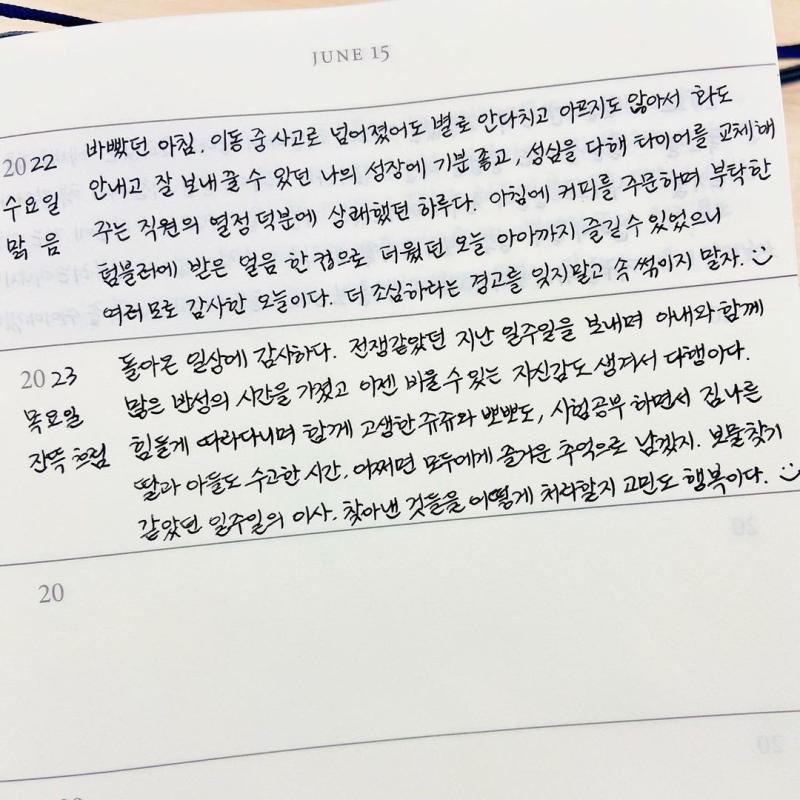 JUNE 15
2022 바빴던 아침. 이동 중 사고로 넘어졌어도 별로 안다치고 아프지도 않아서 화도
수요일 안내고 잘 보내줄 수 있었던 나의 성장에 기분 좋고, 성심을 다해 타이어를 교체해
맑음 주는 직원의 열정 덕분에 상쾌했던 하루다. 아침에 커피를 주문하며 부탁한
텀블러에 받은 얼음 한 컵으로 더웠던 오늘 아아까지 즐길 수 있었으니
여러모로 감사한 오늘이다. 더 조심하라는 경고를 잊지말고 속 썩이지 말자.
2023 돌아온 일상에 감사하다. 전쟁같았던 지난 일주일을 보내며 아내와 함께
목요일 많은 반성의 시간을 가졌고 이젠 비울 수 있는 자신감도 생겨서 다행이다.
잔뜩 흐림 힘들게 따라다니며 함께 고생한 쥬쥬와 뽀뽀도, 시험공부 하면서 짐 나른
딸과 아들도 수고한 시간. 어쩌면 모두에게 즐거운 추억으로 남겠지. 보물찾기
같았던 일주일의 이사. 찾아낸 것들을 어떻게 처리할지 고민도 행복이다.
20